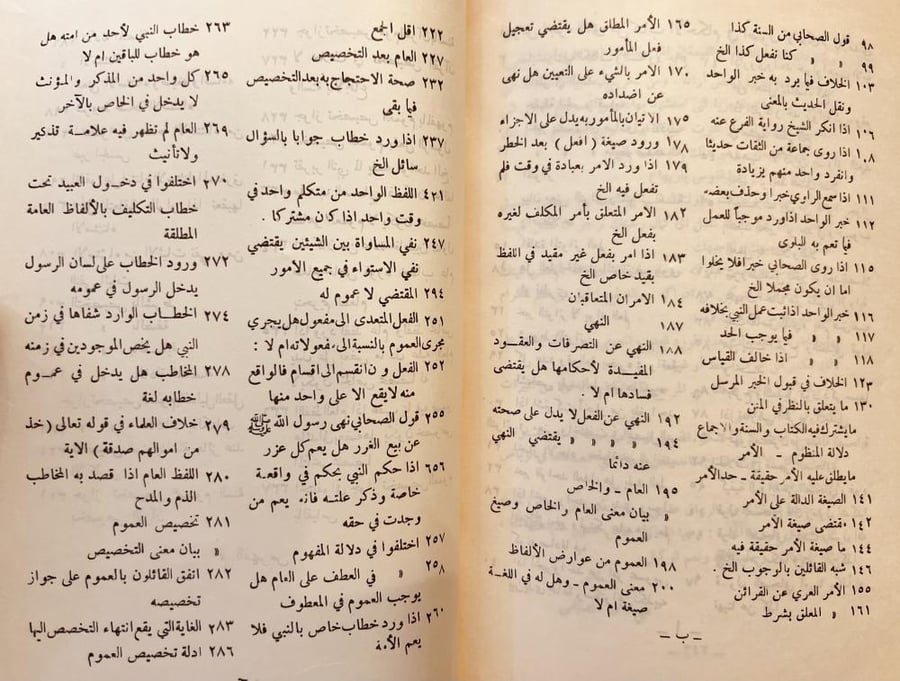 ٩٨ قول الصحابي من السنة كذا
٩٩ » » كنا نفعل كذا الخ
١٠٣ الخلاف فيما يرد به خبر الواحد
ونقل الحديث بالمعنى
١٠٦ اذا انكر الشيخ رواية الفرع عنه
١٠٨ اذا روى جماعة من الثقات حديثا
وانفرد واحد منهم بزيادة
١١١ اذا سمع الراوي خبرا وحذف بعضه
١١٢ خبر الواحد اذا ورد موجباً للعمل
فيما تعم به البلوى
١١٥ اذا روى الصحابي خبرا فلا يخلوا
اما ان يكون مجملا الخ
١١٦ خبر الواحد اذا ثبت عمل النبي بخلافه
١١٧ » » فيما يوجب الحد
١١٨ » » اذا خالف القياس
١٢٣ الخلاف في قبول الخبر المرسل
١٣٠ ما يتعلق بالنظر في المتن
ما يشترك فيه الكتاب والسنة والاجماع
دلالة المنظوم - الأمر
ما يطلق عليه الأمر حقيقة - حد الأمر
١٤١ الصيغة الدالة على الأمر
١٤٢ مقتضى صيغة الأمر
١٤٤ ما صيغة الأمر حقيقة فيه
١٤٦ شبه القائلين بالوجوب الخ .
١٥٥ الأمر العري عن القرائن
١٦١ » المعلق بشرط
١٦٥ الأمر المطلق هل يقتضي تعجيل
فعل المأمور
١٧٠ الامر بالشيء على التعيين هل نهى
عن اضداده
١٧٥ الاتيان بالمأمور به يدل على الاجزاء
١٧٨ ورود صيغة ( افعل ) بعد الحظر
١٧٩ اذا ورد الامر بعبادة في وقت فلم
تفعل فيه الخ
١٨٢ الامر المتعلق بأمر المكلف لغيره
بفعل الخ
١٨٣ اذا امر بفعل غير مقيد في اللفظ
بقيد خاص الخ
١٨٤ الامران المتعاقبان
١٨٧ النهي
١٨٨ النهي عن التصرفات والعقود
المفيدة لأحكامها هل يقتضى
فسادها ام لا .
١٩٢ النهي عن الفعل لا يدل على صحته
١٩٤ » » » » يقتضي النهي
عنه دائما
١٩٥ العام - والخاص
» بيان معنى العام والخاص وصيغ
العموم
١٩٨ العموم من عوارض الألفاظ
٢٠٠ معنى العموم - وهل له في اللغة
صيغة ام لا
- ب -
٢٢٢ اقل الجمع
٢٢٧ العام بعد التخصيص
٢٣٢ صحة الاحتجاج به بعد التخصيص
فيما بقى
٢٣٧ اذا ورد خطاب جوابا بالسؤال
سائل الخ
٤٢١ اللفظ الواحد من متكلم واحد في
وقت واحد اذا كان مشتركا .
٢٤٧ نفي المساواة بين الشيئين يقتضي
نفي الاستواء في جميع الامور
٢٩٤ المقتضي لا عموم له
٢٥١ الفعل المتعدى الى مفعول هل يجري
مجرى العموم بالنسبة الى مفعولاته ام لا :
٢٥٢ الفعل و ن انقسم الى اقسام فالواقع
منه لا يقع الا على واحد منها
٢٥٥ قول الصحابي نهى رسول الله ﷺ
عن بيع الغرر هل يعم كل غرر
٦٥٦ اذا حكم النبي بحكم في واقعة
خاصة وذكر علته فانه يعم من
وجدت في حقه
٢٥٧ اختلفوا في دلالة المفهوم
٢٥٨ » في العطف على العام هل
يوجب العموم في المعطوف
٢٦٠ اذا ورد خطاب خاص بالنبي فلا
يعم الأمة
٢٦٣ خطاب النبي لأحد من امته هل
هو خطاب للباقين ام لا
٢٦٥ كل واحد من المذكر والمؤنث
لا يدخل في الخاص بالآخر
٢٦٩ العام لم تظهر فيه علامة تذكير
ولا تأنيث
٢٧٠ اختلفوا في دخول العبيد تحت
خطاب التكليف بالألفاظ العامة
المطلقة
٢٧٢ ورود الخطاب على لسان الرسول
يدخل الرسول في عمومه
٢٧٤ الخطاب الوارد شفاها في زمن
النبي هل يخص الموجودين في زمنه
٢٧٨ المخاطب هل يدخل في عموم
خطابه لغة
٢٧٩ خلاف العلماء في قوله تعالى ( خذ
من اموالهم صدقة ) الاية
٢٨٠ اللفظ العام اذا قصد به المخاطب
الذم والمدح
٢٨١ تخصيص العموم
» بيان معنى التخصيص
٢٨٢ اتفق القائلون بالعموم على جواز
تخصيصه
٢٨٣ الغاية التي يقع انتهاء التخصص اليها
٢٨٦ ادلة تخصيص العموم